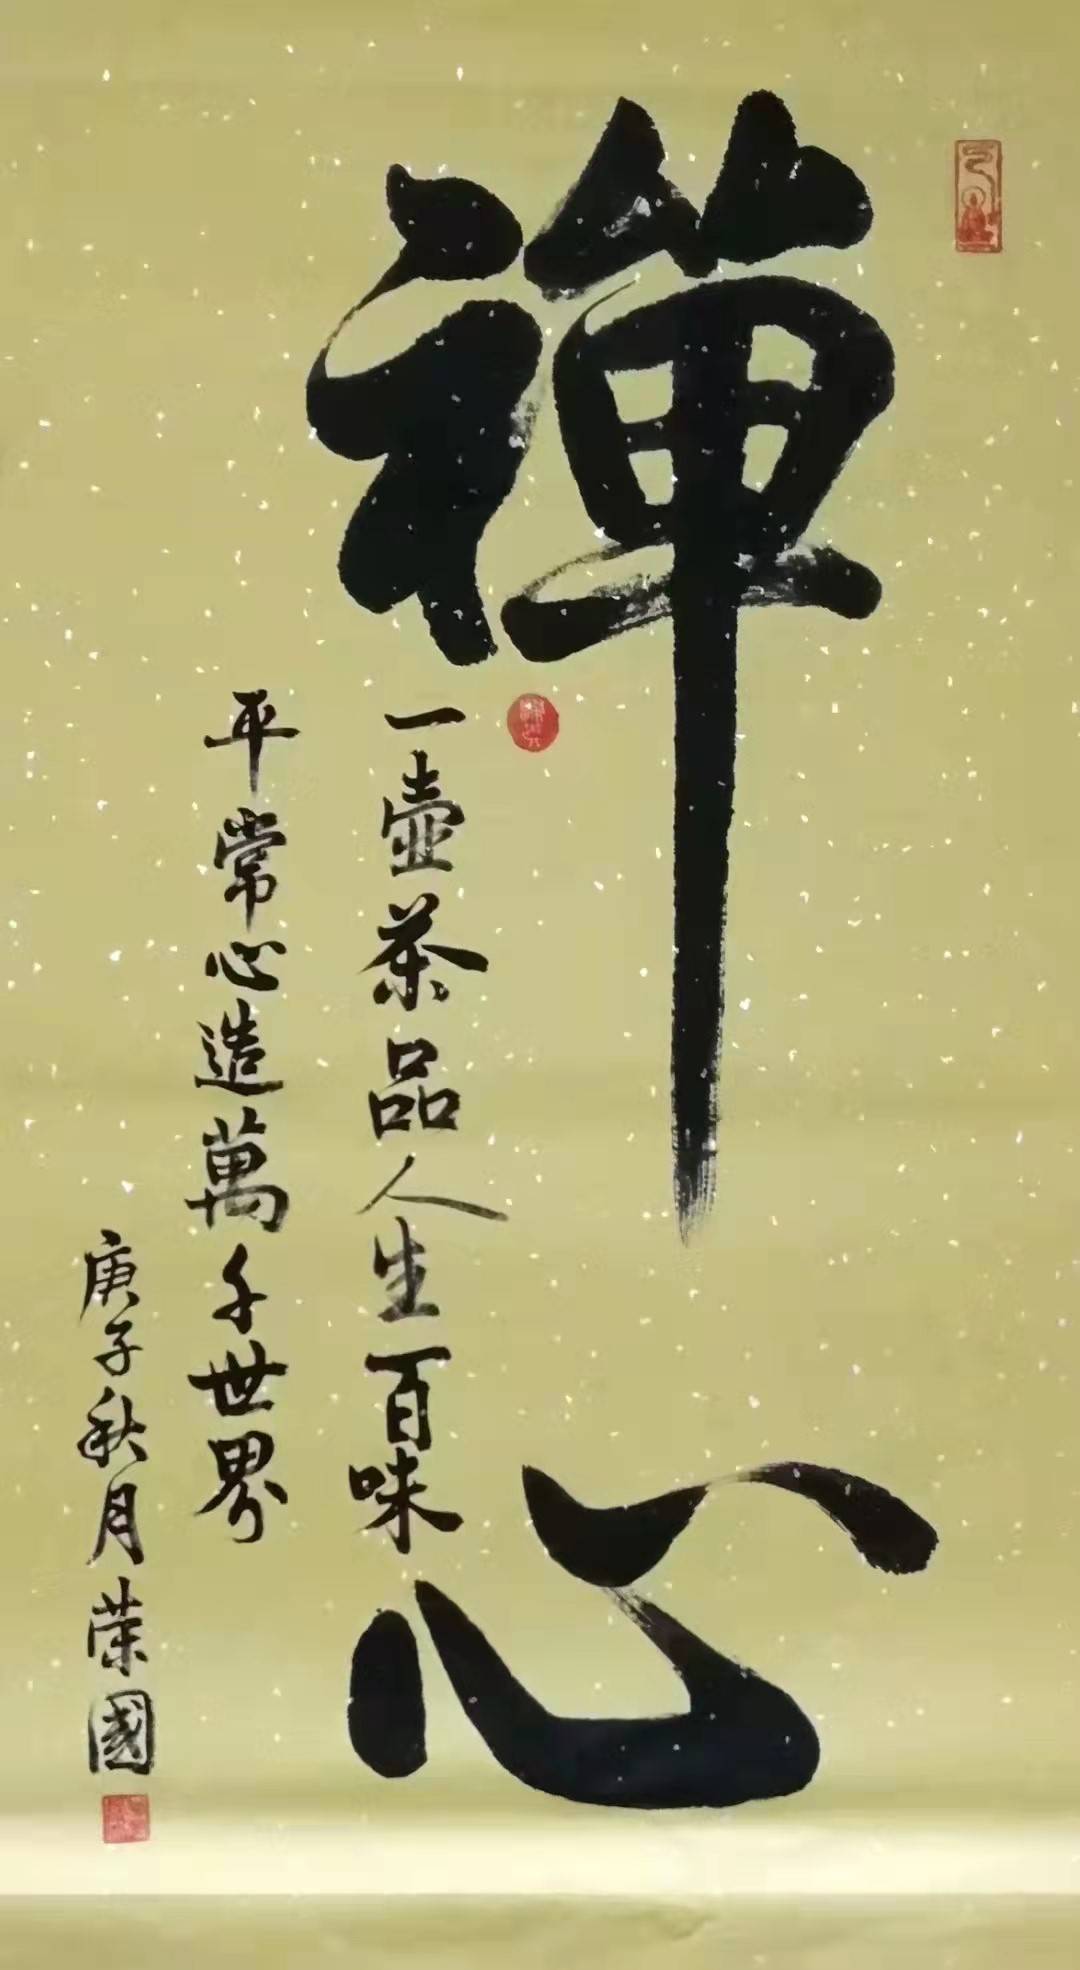 禅心
一壶茶品人生百味
平常心造萬千世界
庚子秋月荣國